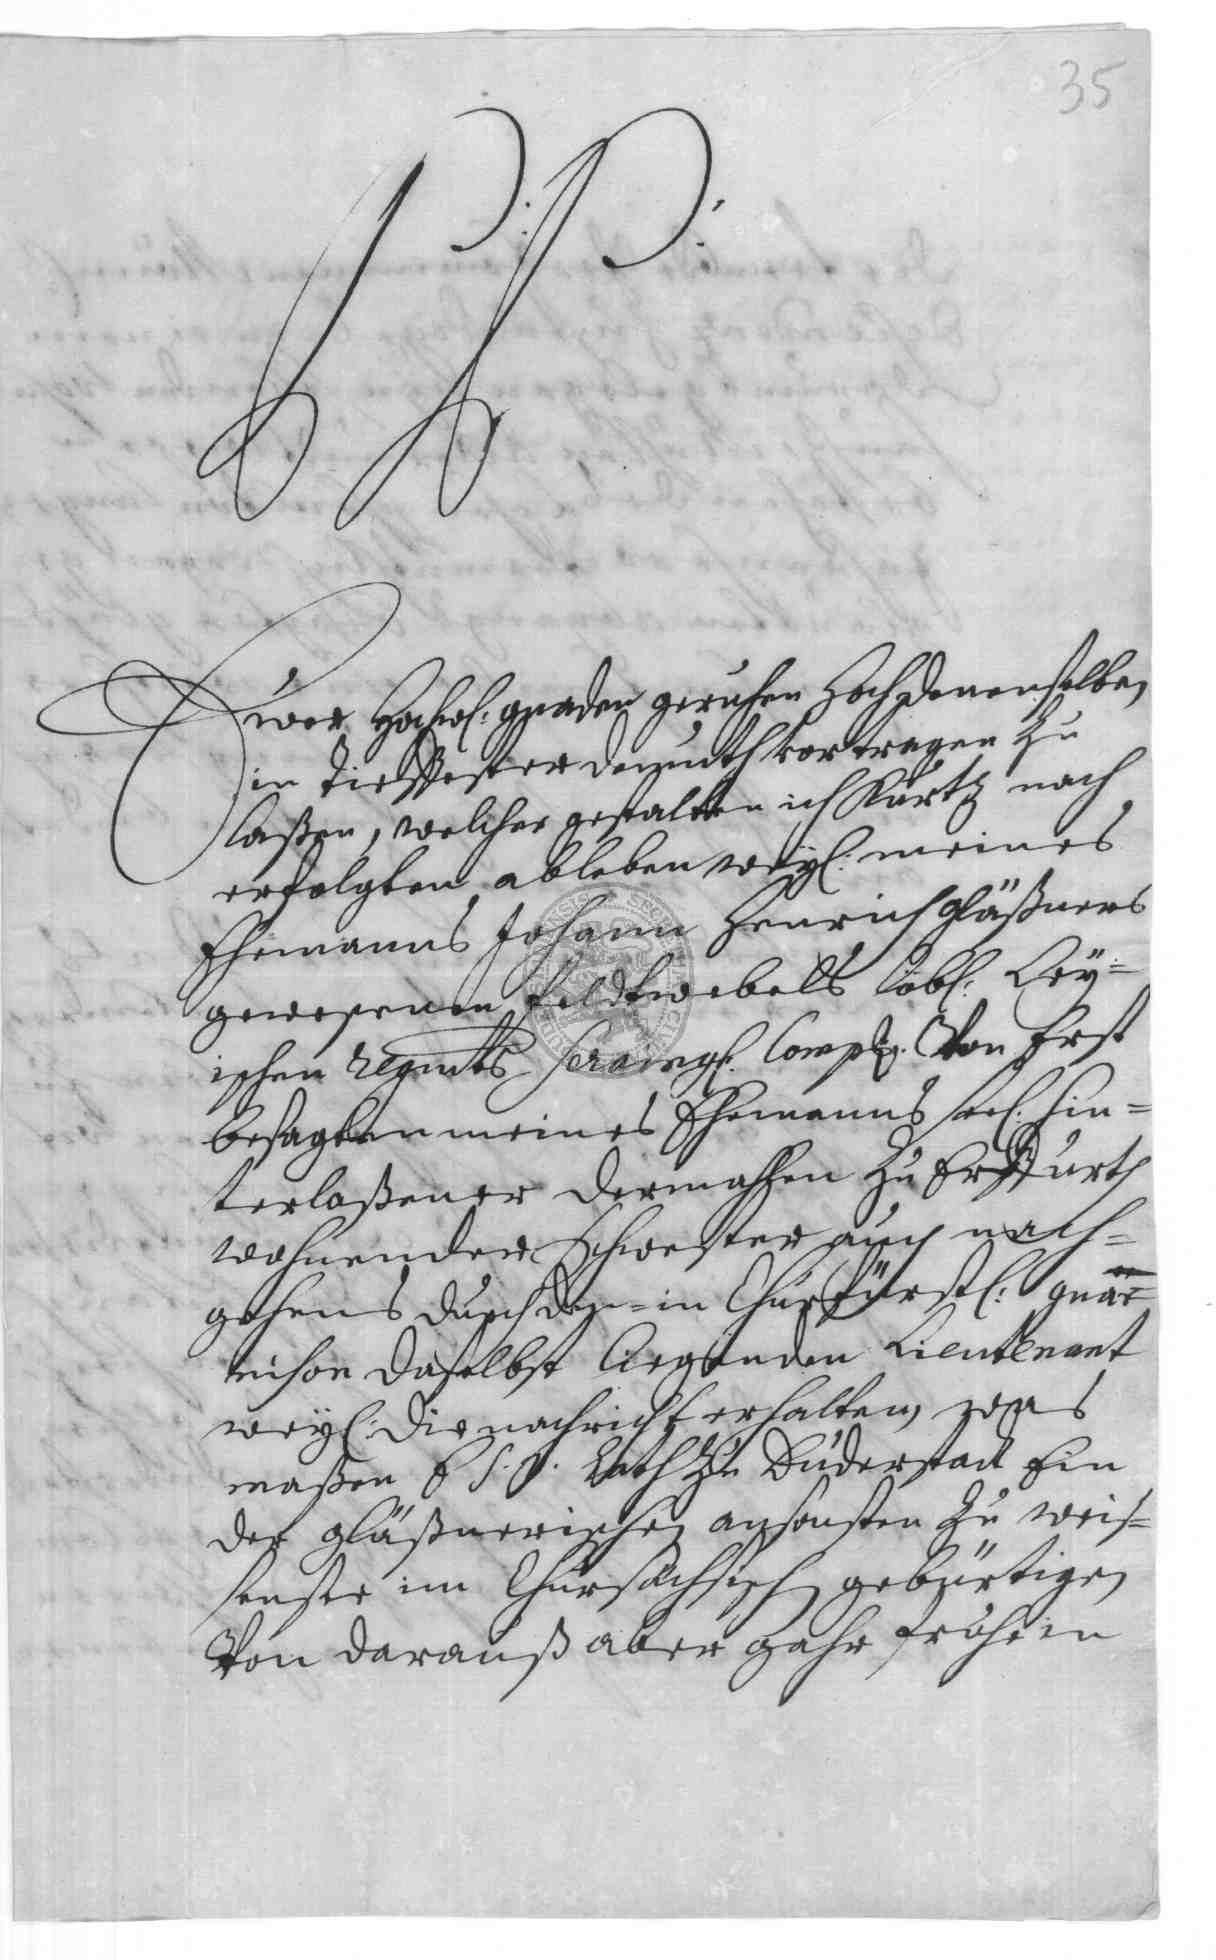 35
P: P:
Ewer Hochw: gnaden geruhen Hochdenenselben
in Tieffester demuth vortragen zu
laßen, welcher gestalten ich Kurtz nach
erfolgten ableben weyl: meines
Ehemanns Johann Henrich gläßners
gewesenen feldtwebels Löbl:
ischen Regmts Comp: Von Erst
besagten meines Ehemanns seel: hin=
terlaßener dermahlen zu Erffurth
wohnender Schwester auch nach=
gehens durch den in Churfürstl: guar=
nison daselbst liegenden Lieutenant
weyl: die nachricht erhalten, was
maßen E. Rath zu Duderstadt Ein
der gläßnerischen ansonsten zu weis=
sensee im Chursächsisch gebürtigen
Von darauß aber gahr frühe in